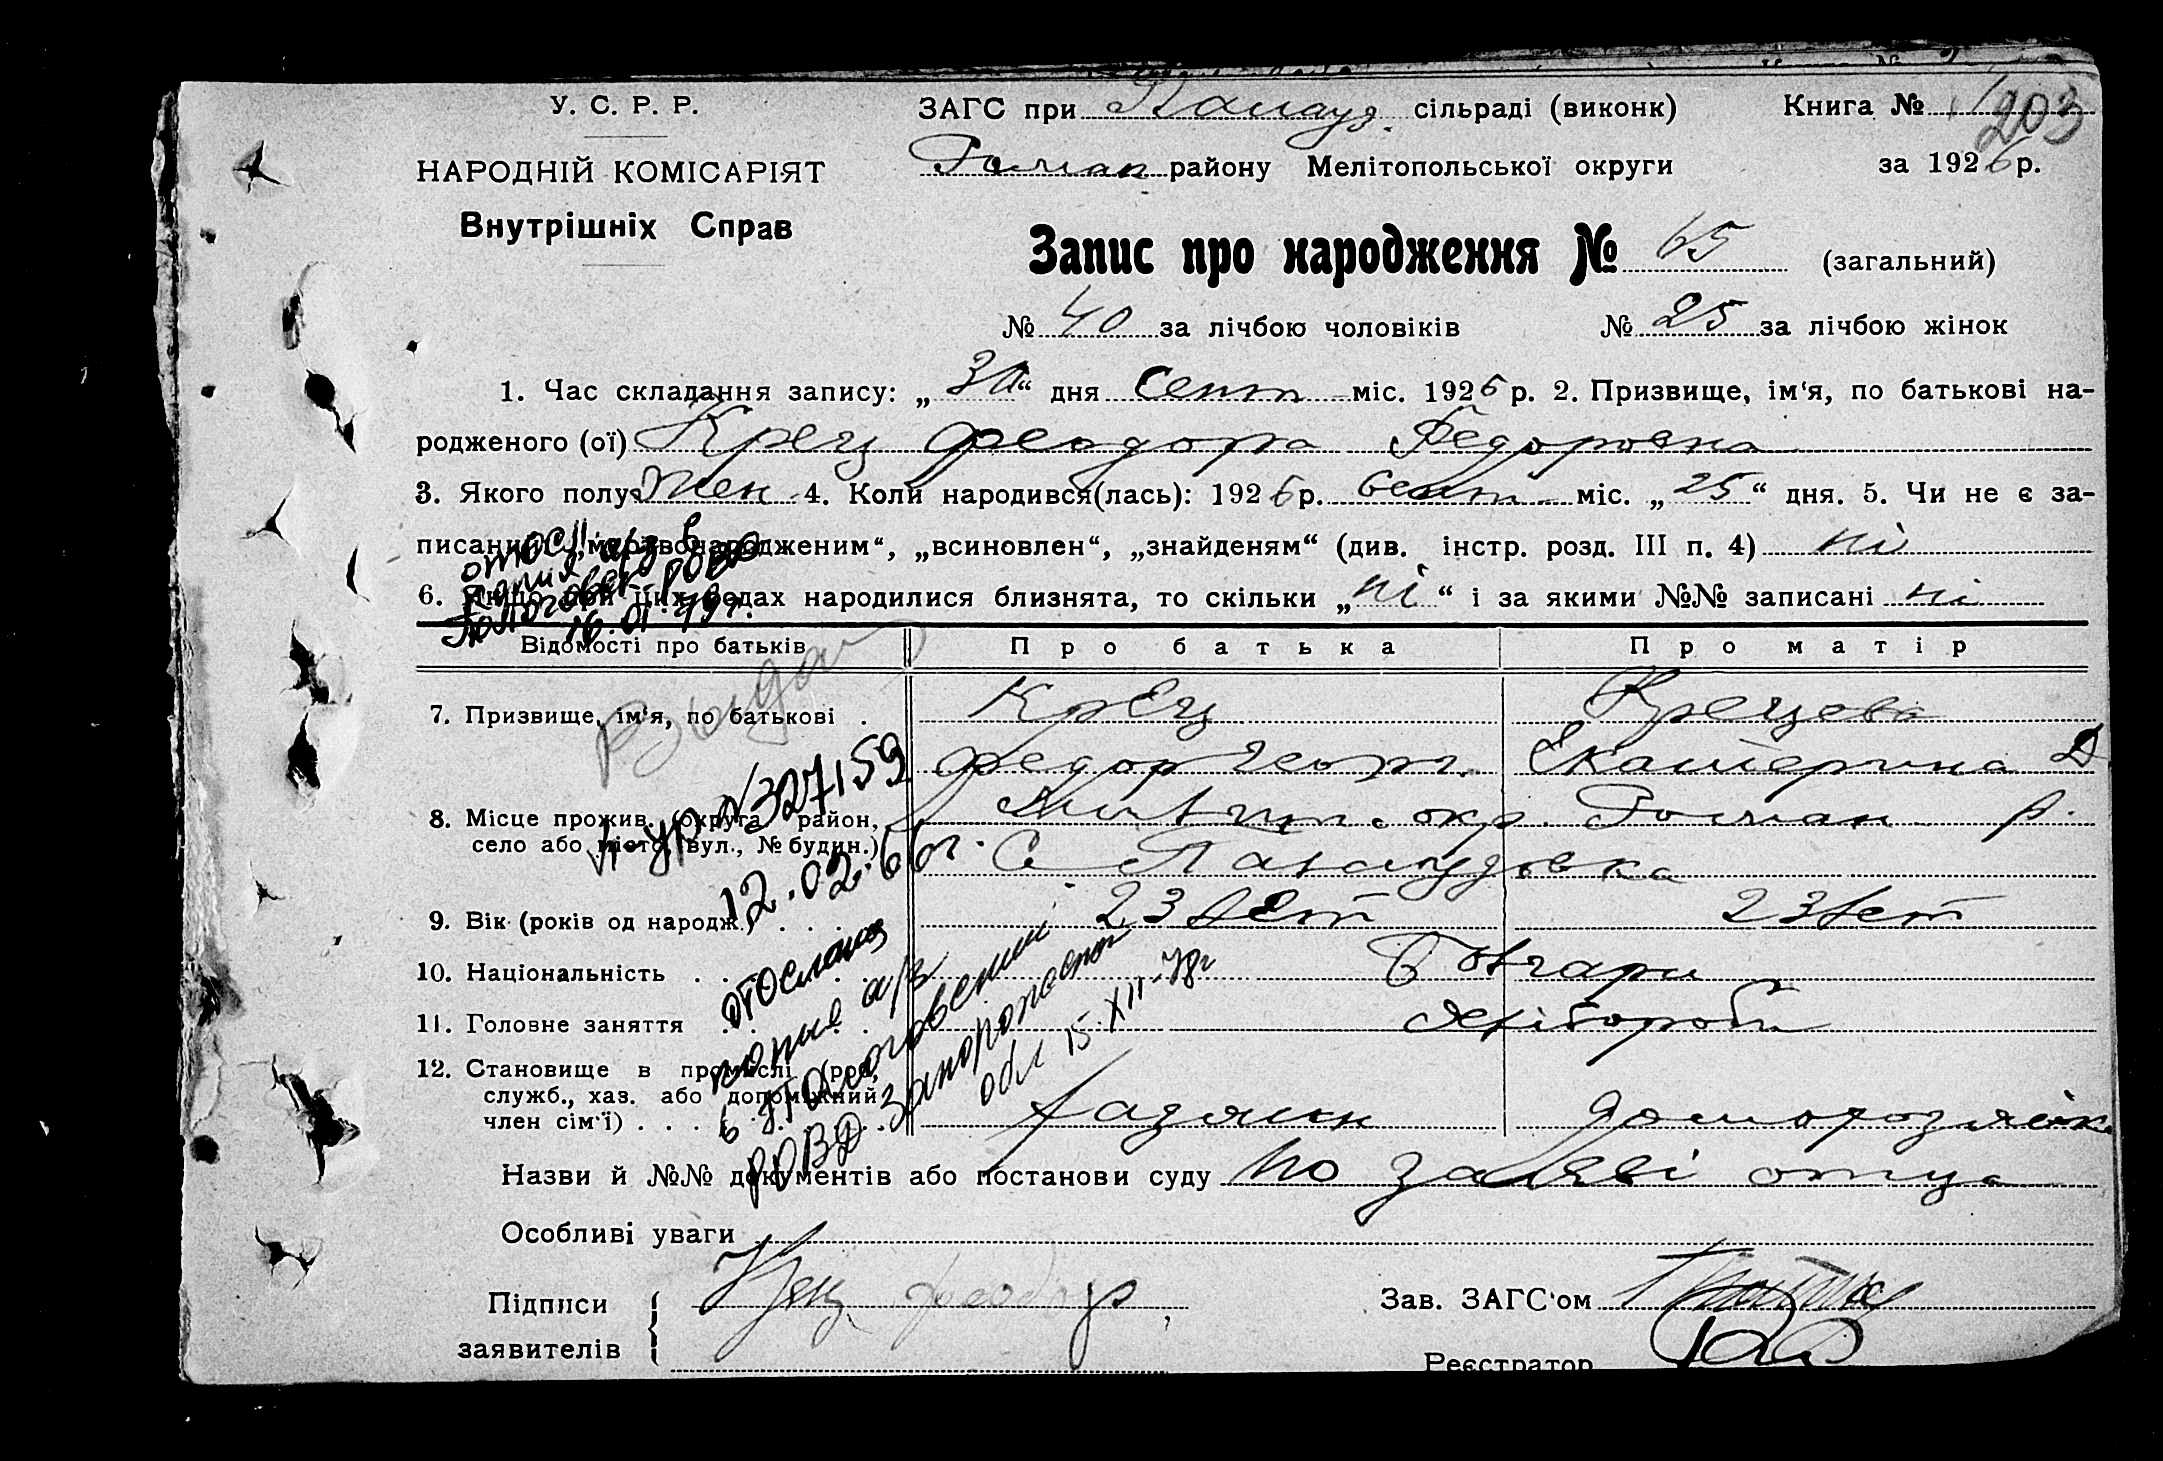 У. С. Р. Р.
ЗАГС при сільраді (виконк) Книга № 203
НАРОДНІЙ КОМІСАРІЯТ району Мелітопольської округи за 1926 р.
Внутрішніх Справ
Запис про народження № 65 (загальний)
№ 40 за лічбою чоловіків № 25 за лічбою жінок
1. Час складання запису: „30“ дня Сент міс. 1926 р. 2. Призвище, ім‘я, по батькові на-
родженого (ої) Крец Феодора Федоровна
3. Якого полу: жен 4. Коли народився(лась): 1926 р. Сент міс. „25“ дня. 5. Чи не є за-
писаним: „мертвонародженим“, „всиновлен“, „знайденям“ (див. інстр. розд. III п. 4) ні
6. Якщо при цих родах народилися близнята, то скільки „ні“ і за якими №№ записані ні
копия а/з в
Пологовск. РОВД
16.01.79г.
Відомості про батьків Про батька Про матір
Выдан
7. Призвище, ім‘я, по батькові . Крец Крецева
Федор Екатерина Д
8. Місце прожив. (округа, район, окр. р.
село або місто, вул., № будин.) С
№ 327159
12.02.60г.
9. Вік (років од народж.) . . . . 23 лет 23 лет
10. Національність . . . . Болгари
11. Головне заняття . . . . Хлібороби
12. Становище в промислі (роб,
служб., хаз. або допоміжний
член сім‘ї) . . . . хазяин
отослана
копия а/з
в Пологовский
РОВД Запорожской
обл 15.XII-78г
Назви й №№ документів або постанови суду по заяві отца
Особливі уваги
Підписи Крец Феодор Зав. ЗАГС‘ом
заявителів Реєстратор